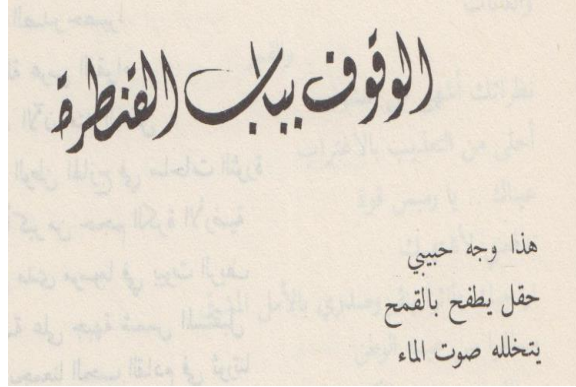 الوقوف بباب القنطرة
هذا وجه حبيبي
حقل يطفح بالقمح
يتخلله صوت الماء